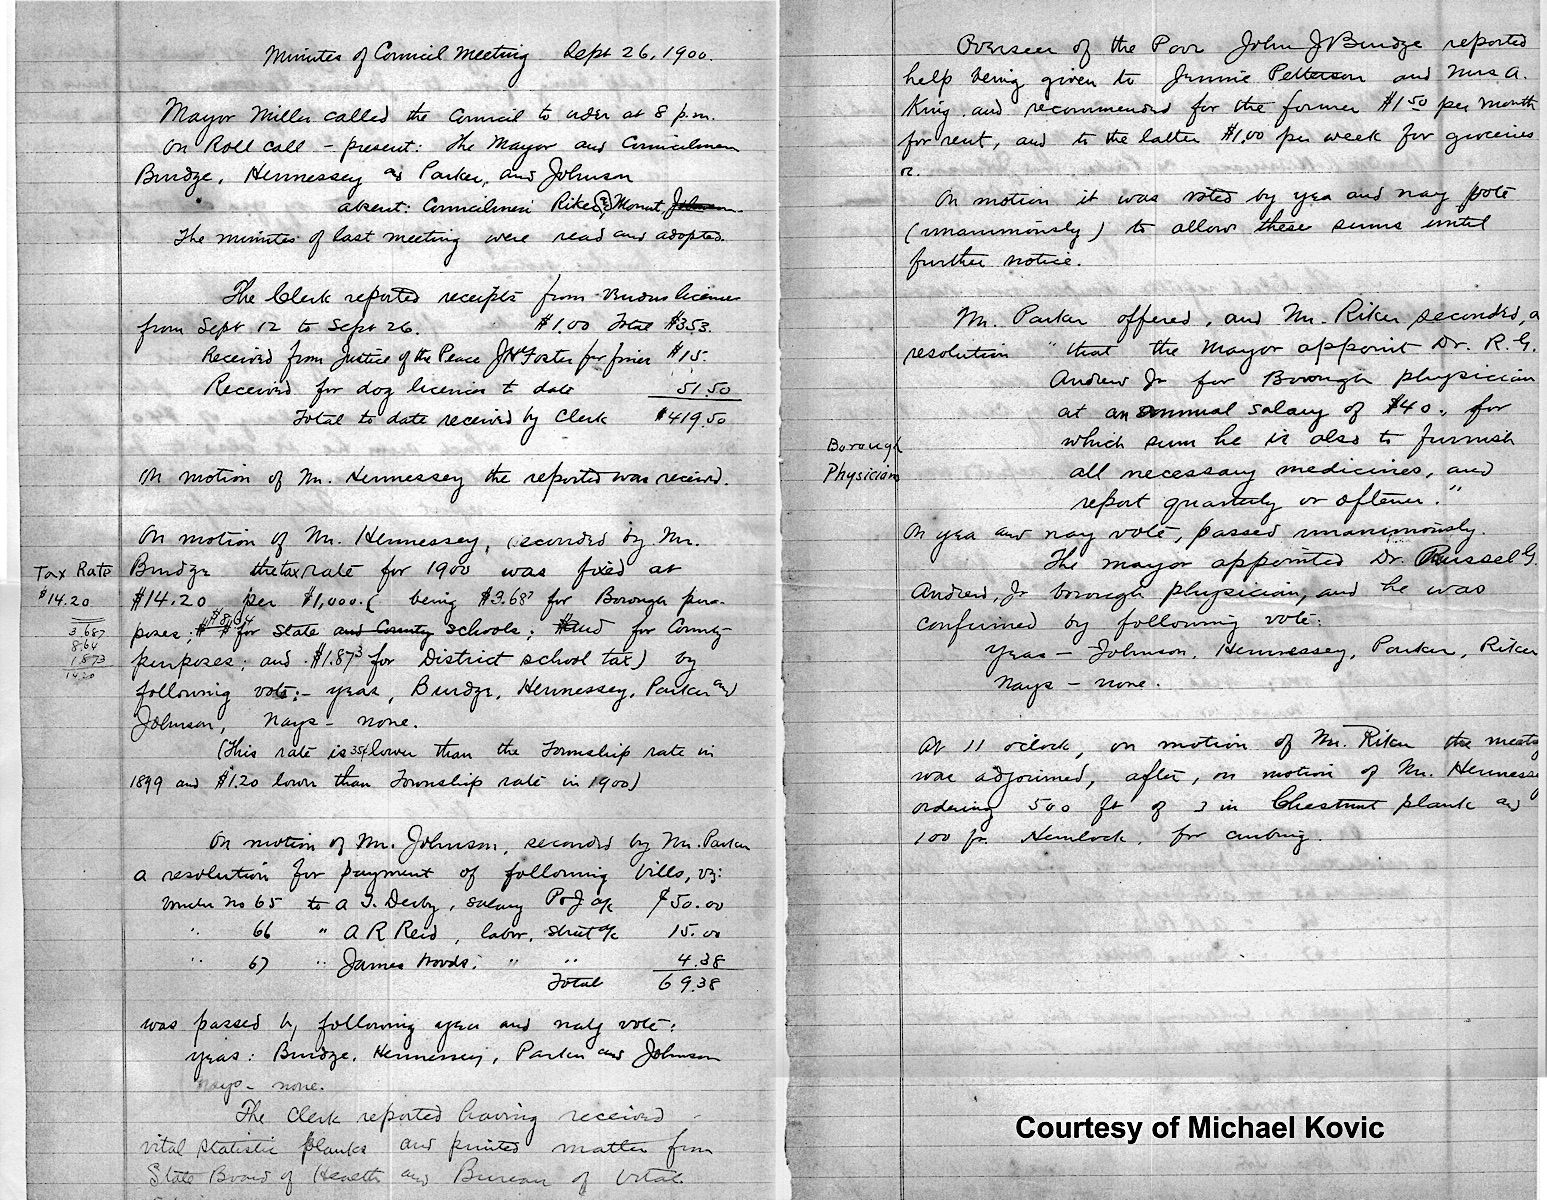 Minutes of Council Meeting Sept 26, 1900.
Mayor Miller called the Council to order at 8 p.m.
On Roll call – present: The Mayor and Councilmen
Burdge, Hennessey and Parker, and Johnson
absent: Councilmen Riker & Mount, Johnson
The minutes of last meeting were read and adopted.
The Clerk reported receipts from various licenses
from Sept 12 to Sept 26. $1.00 Total $353.
Received from Justice of the Peace J H Foster for fines $15.
Received for dog licenses to date 51.50
Total to date received by Clerk $419.50
On motion of Mr. Hennessey the reported was received.
On motion of Mr. Hennessey, seconded by Mr.
Tax Rate
$14.20
3.687
8.64
1.873
14.20
Burdge the tax rate for 1900 was fixed at
$14.20 per $1,000. ( being $3.687 for Borough pur-
poses; $8.64 for State and County schools; and for County
purposes; and $1.873 for District school tax) by
following vote:– yeas, Burdge, Hennessey, Parker and
Johnson, Nays – none.
(This rate is 35¢ lower than the Township rate in
1899 and $1.20 lower than Township rate in 1900)
On motion of Mr. Johnson, seconded by Mr. Parker
a resolution for payment of following bills, viz:
Order No 65 to A T. Derby, salary P of J a/c $50.00
" 66 " A R Reid, labor, street a/c 15.00
" 67 " James Woods, " " 4.38
Total 69.38
was passed by following yea and nay vote:
yeas: Burdge, Hennessey, Parker and Johnson
nays – none.
The Clerk reported having received
vital statistic blanks and printed matter from
State Board of Health and Bureau of Vital
Overseer of the Poor John J Burdge reported
help being given to Jennie Petterson and Mrs A.
King, and recommended for the former $1.50 per month
for rent, and to the latter $1.00 per week for groceries
On motion it was voted by yea and nay vote
(unanimously) to allow these sums until
further notice.
Mr. Parker offered, and Mr. Riker seconded, a
resolution "that the Mayor appoint Dr. R. G.
Andrew Jr for Borough physician
at an annual salary of $40., for
Borough
Physician
which sum he is also to furnish
all necessary medicines, and
report quarterly or oftener."
On yea and nay vote, passed unanimously.
The mayor appointed Dr. Russel G.
Andrew, Jr borough physician, and he was
confirmed by following vote:
Yeas – Johnson, Hennessey, Parker, Riker
Nays – none.
At 11 o'clock, on motion of Mr. Riker the meeting
was adjourned, after, on motion of Mr. Hennessey
ordering 500 ft of 3 in Chestnut plank and
100 ft. Hemlock, for curbing.
Courtesy of Michael Kovic